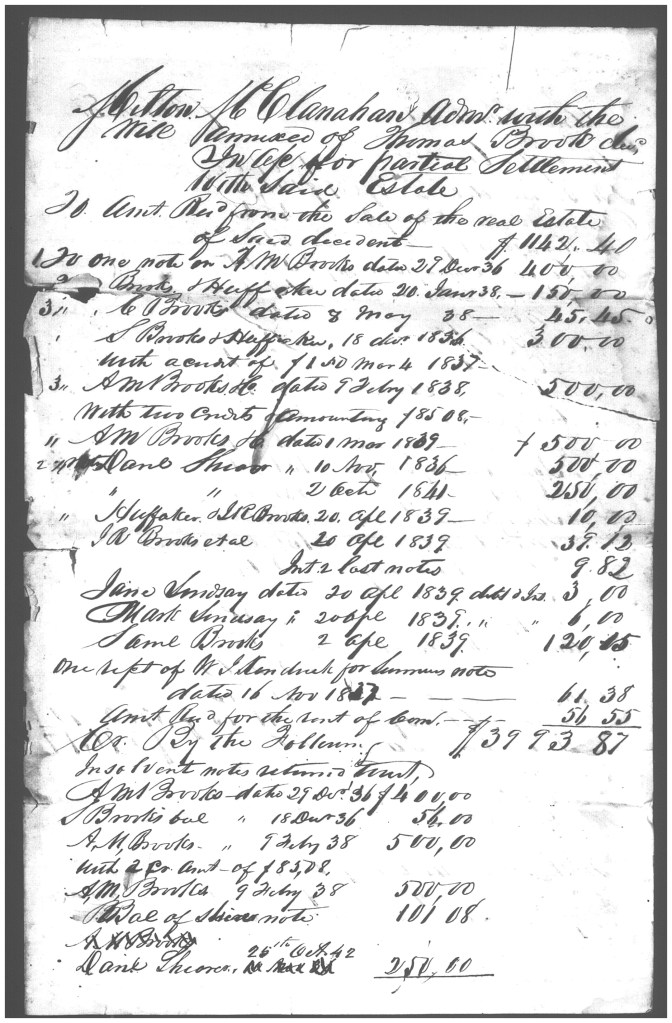 Milton McClanahan Admr. with the
Will annexed of Thomas Brooks decd
In a/c for partial Settlement
With said Estate
To Amt. Recd from the Sale of the real Estate
of said decedent — $1142.40
1 To one note on A. M. Brooks dated 29 Decr 36 400.00
2 " Brooks & Huffaker dated 20. Janr 38. — 150.00
3 " " C Brooks dated 8 May 38 — 45.45
" S Brooks & Huffaker, 18 decr 1836. 300.00
with a credit of $150 Mar 4 1837 —
3 " A M Brooks &c. dated 9 Feby 1838, 500,00
With two Credits amounting $85 08. —
" A M Brooks &c dated 1 Mar 1839 — $500 00
2 Danl Shearer " 10 Nov, 1836 — 500,00
" " 2 Octr 1841 — 250,00
" Huffaker & J R Brooks. 20. Apl 1839 — 10,00
J R Brooks et al 20 Apl 1839. 39.12
Int 2 last notes 9.82
Jane Lindsay dated 20 Apl 1839. debt & Int. 3,00
Mark Lindsay " 20 Apl 1839. " " 6,00
Saml Brooks 2 Apl 1839. 120,15
One rect of W J Kendrick for notes
dated 16 Nov 1837 — — — 61.38
Amt Recd for the rent of — 56 55
$3993 87
Cr. By the Following
Insolvent notes returned
A M Brooks — dated 29 Decr 36 $400,00
S Brooks bal " 18 Decr 36 56,00
A, M. Brooks. " 9 Feby 38 500,00
with 2 Cr. Amt — of $85,08.
A, M, Brooks 9 Feby 38 500,00
Bal of note. 101 08.
A M Brooks
Danl Shearer. 26th Oct. 42 250,00